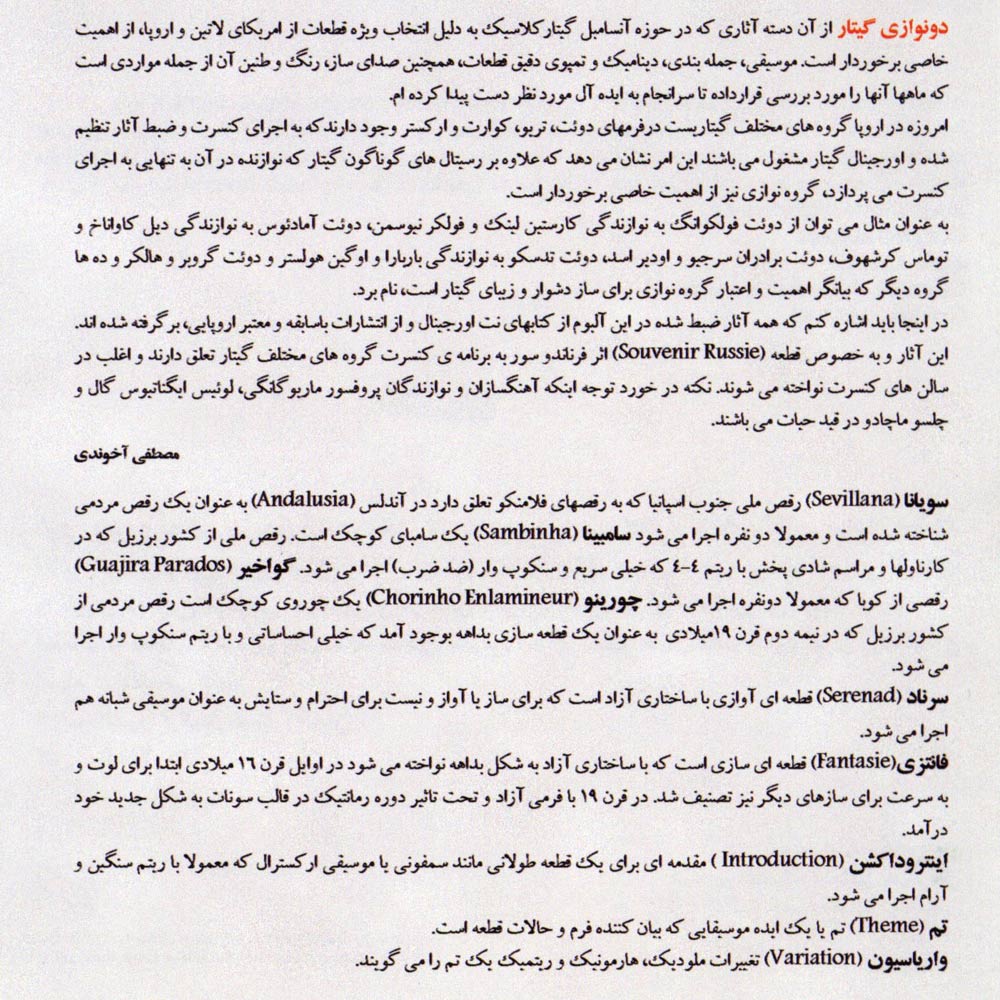 دونوازی گیتار از آن دسته آثاری که در حوزه آنسامبل گیتار کلاسیک به دلیل انتخاب ویژه قطعات از امریکای لاتین و اروپا، از اهمیت
خاصی برخوردار است. موسیقی، جمله بندی، دینامیک و تمپوی دقیق قطعات، همچنین صدای ساز، رنگ و طنین آن از جمله مواردی است
که ماهها آنها را مورد بررسی قرارداده تا سرانجام به ایده آل مورد نظر دست پیدا کرده ام.
امروزه در اروپا گروه های مختلف گیتاریست درفرمهای دوئت، تریو، کوارت و ارکستر وجود دارندکه به اجرای کنسرت و ضبط آثار تنظیم
شده و اورجینال گیتار مشغول می باشند این امر نشان می دهد که علاوه بر رسیتال های گوناگون گیتار که نوازنده در آن به تنهایی به اجرای
کنسرت می پردازد، گروه نوازی نیز از اهمیت خاصی برخوردار است.
به عنوان مثال می توان از دوئت فولکوانگ به نوازندگی کارستین لینک و فولکر نیوسمن، دوئت آمادئوس به نوازندگی دیل کاواناخ و
توماس کرشهوف، دوئت برادران سرجیو و اودیر اسد، دوئت تدسکو به نوازندگی باربارا و اوگین هولستر و دوئت گروبر و هالکر و ده ها
گروه دیگر که بیانگر اهمیت و اعتبار گروه نوازی برای ساز دشوار و زیبای گیتار است، نام برد.
در اینجا باید اشاره کنم که همه آثار ضبط شده در این آلبوم از کتابهای نت اورجینال و از انتشارات باسابقه و معتبر اروپایی، برگرفته شده اند.
این آثار و به خصوص قطعه (Souvenir Russie) اثر فرناندو سور به برنامه ی کنسرت گروه های مختلف گیتار تعلق دارند و اغلب در
سالن های کنسرت نواخته می شوند. نکته در خورد توجه اینکه آهنگسازان و نوازندگان پروفسور ماریوگانگی، لوئیس ایگناتیوس گال و
چلسو ماچادو در قید حیات می باشند.
مصطفی آخوندی
سویانا (Sevillana) رقص ملی جنوب اسپانیا که به رقصهای فلامنکو تعلق دارد در آندلس (Andalusia) به عنوان یک رقص مردمی
شناخته شده است و معمولا دو نفره اجرا می شود سامبینا (Sambinha) یک سامبای کوچک است. رقص ملی از کشور برزیل که در
کارناولها و مراسم شادی پخش با ریتم ۴-۴ که خیلی سریع و سنکوپ وار (ضد ضرب) اجرا می شود. گواخیر (Guajira Parados)
رقصی از کوبا که معمولا دونفره اجرا می شود. چورینو (Chorinho Enlamineur) یک چوروی کوچک است رقص مردمی از
کشور برزیل که در نیمه دوم قرن ۱۹میلادی به عنوان یک قطعه سازی بداهه بوجود آمد که خیلی احساساتی و با ریتم سنکوپ وار اجرا
می شود.
سرناد (Serenad) قطعه ای آوازی با ساختاری آزاد است که برای ساز یا آواز و نیست برای احترام و ستایش به عنوان موسیقی شبانه هم
اجرا می شود.
فانتزی(Fantasie) قطعه ای سازی است که با ساختاری آزاد به شکل بداهه نواخته می شود در اوایل قرن ۱۶ میلادی ابتدا برای لوت و
به سرعت برای سازهای دیگر نیز تصنیف شد. در قرن ۱۹ با فرمی آزاد و تحت تاثیر دوره رمانتیک در قالب سونات به شکل جدید خود
درآمد.
اینتروداکشن (Introduction ) مقدمه ای برای یک قطعه طولانی مانند سمفونی یا موسیقی ارکسترال که معمولا با ریتم سنگین و
آرام اجرا می شود.
تم (Theme) تم یا یک ایده موسیقایی که بیان کننده فرم و حالات قطعه است.
واریاسیون (Variation) تغییرات ملودیک، هارمونیک و ریتمیک یک تم را می گویند.